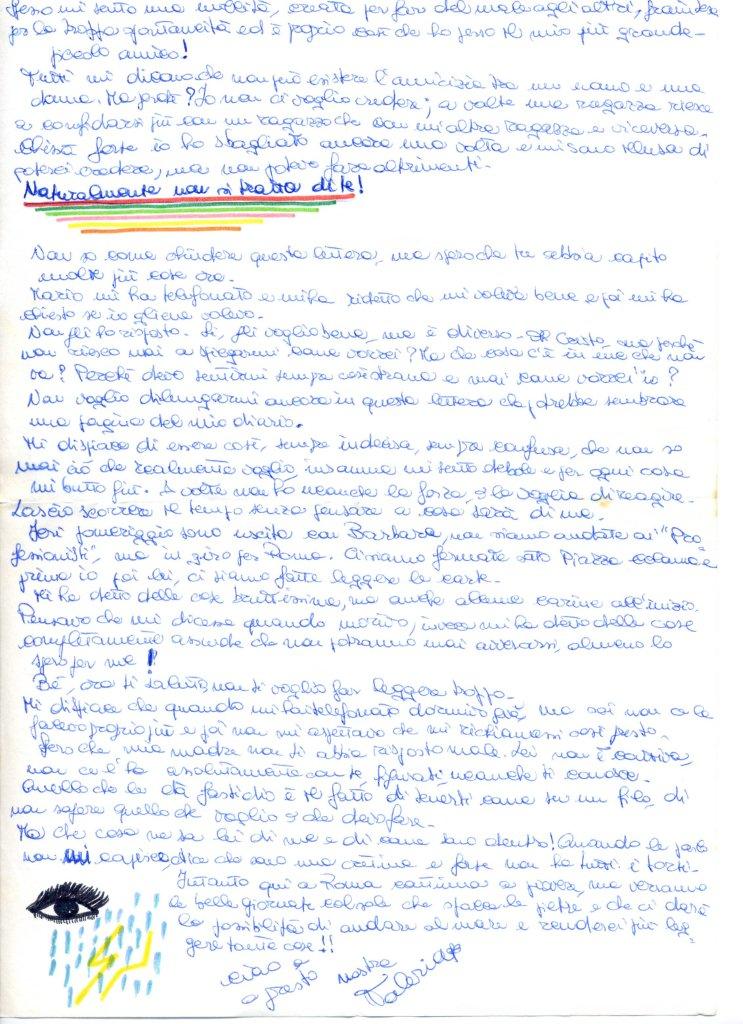 spesso mi sento una nullità, creata per far del male agli altri,
per la troppa spontaneità ed è proprio così che ho perso il mio più grande-
piccolo amico!
Tutti mi dicono che non può esistere l'amicizia tra un uomo e una
donna. Ma perché? Io non ci voglio credere; a volte una ragazza riesce
a confidarsi più con un ragazzo che con un'altra ragazza e viceversa.
Chissà forse io ho sbagliato ancora una volta e mi sono illusa di
poterci credere, ma non potevo fare altrimenti.
Naturalmente non si tratta di te!
Non so come chiudere questa lettera, ma spero che tu abbia capito
molte più cose ora.
Mario mi ha telefonato e mi ha ridetto che mi voleva bene e poi mi ha
chiesto se io gliene volevo.
Non gli ho risposto. Sì, gli voglio bene, ma è diverso. Oh Cristo, ma perché
non riesco mai a spiegarmi come vorrei? Ma che cosa c'è in me che non
va? Perché devo sentirmi sempre così strana e mai come vorrei io?
Non voglio dilungarmi ancora in questa lettera che potrebbe sembrare
una pagina del mio diario.
Mi dispiace di essere così, sempre indecisa, sempre confusa, che non so
mai ciò che realmente voglio, insomma mi sento debole e per ogni cosa
mi butto giù. A volte non ho neanche la forza, o la voglia di reagire.
Lascio scorrere il tempo senza pensare a cosa sarà di me.
Ieri pomeriggio sono uscita con Barbara, non siamo andate ai "Pro-
fessionisti", ma in giro per Roma. Ci siamo fermate sotto Piazza Colonna e
prima io poi lei, ci siamo fatte leggere le carte.
Mi ha detto delle cose bruttissime, ma anche alcune carine all'inizio.
Pensavo che mi dicesse quando morivo, invece mi ha detto delle cose
completamente assurde che non potranno mai avverarsi, almeno lo
spero per me!
Bé, ora ti saluto, non ti voglio far leggere troppo.
Mi dispiace che quando mi hai telefonato dormivo già, ma sai non ce la
facevo proprio più e poi non mi aspettavo che mi richiamassi così presto.
Spero che mia madre non ti abbia risposto male. Lei non è cattiva,
non ce l'ha assolutamente con te, figurati, neanche ti conosce.
Quello che le dà fastidio è il fatto di tenersi come su un filo, di
non sapere quello che voglio o che devo fare.
Ma che cosa ne sa lei di me e di come sono dentro! Quando le parlo
non mi capisce, dice che sono una cretina e forse non ha tutti i torti.
Intanto qui a Roma continua a piovere, ma verranno
le belle giornate col sole che spacca le pietre e che ci darà
la possibilità di andare al mare e renderci più leg-
gere tante cose!!
ciao e
a presto
vostra
Valeria